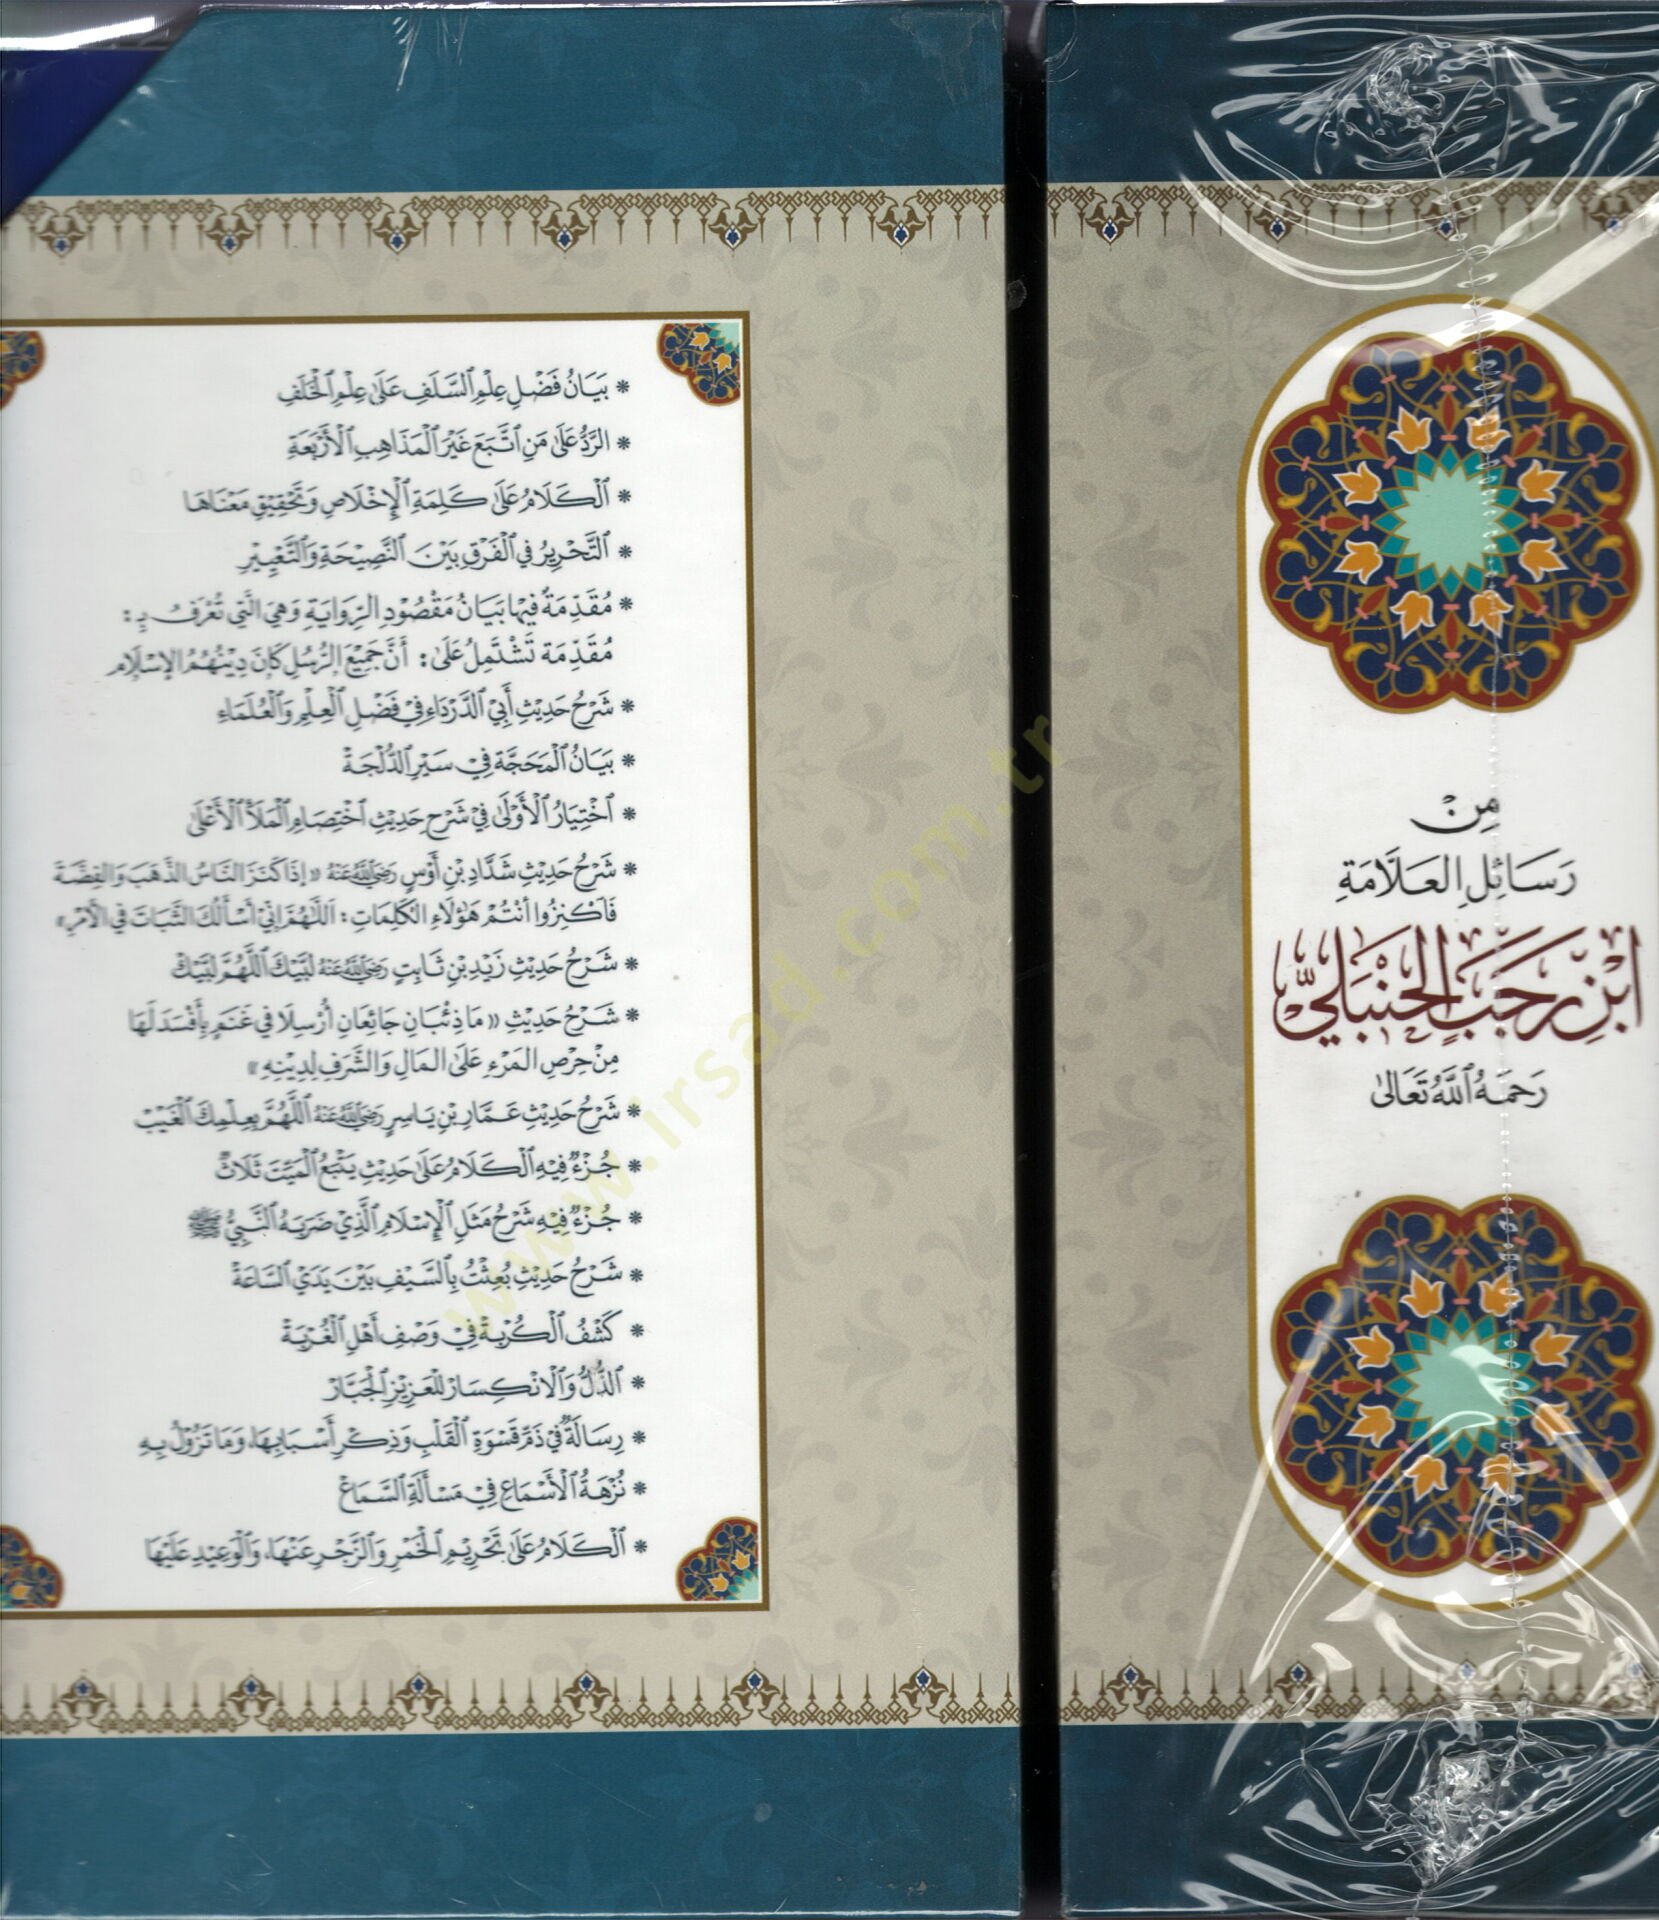 مِنْ
رَسَائِلِ العَلَّامَةِ
ابْنِ رَجَبَ الحَنْبَلِيّ
رَحِمَهُ ٱللَّهُ تَعَالَىٰ
* بَيَانُ فَضْلِ عِلْمِ ٱلسَّلَفِ عَلَىٰ عِلْمِ ٱلْخَلَفِ
* الرَّدُّ عَلَىٰ مَنِ ٱتَّبَعَ غَيْرَ ٱلْمَذَاهِبِ ٱلْأَرْبَعَةِ
* ٱلْكَلَامُ عَلَىٰ كَلِمَةِ ٱلْإِخْلَاصِ وَتَحْقِيْقِ مَعْنَاهَا
* ٱلتَّحْرِيرُ فِي ٱلْفَرْقِ بَيْنَ ٱلنَّصِيْحَةِ وَٱلتَّعْيِيْرِ
* مُقَدِّمَةٌ فِيْهَا بَيَانُ مَقْصُوْدِ الرِّوَايَةِ وَهِيَ الَّتِي تُعْرَفُ بِـ :
مُقَدِّمَة تَشْتَمِلُ عَلَىٰ : أَنَّ جَمِيْعَ الرُّسُلِ كَانَ دِيْنُهُمُ الإِسْلَام
* شَرْحُ حَدِيْثِ أَبِي ٱلدَّرْدَاءِ فِيْ فَضْلِ ٱلْعِلْمِ وَٱلْعُلَمَاءِ
* بَيَانُ ٱلْمَحَجَّةِ فِيْ سَيْرِ ٱلدُّلْجَةْ
* ٱخْتِيَارُ ٱلْأَوْلَىٰ فِيْ شَرْحِ حَدِيْثِ ٱخْتِصَامِ ٱلْمَلَأ ٱلْأَعْلَىٰ
* شَرْحُ حَدِيْثِ شَدَّادِ بْنِ أَوْسٍ رَضِيَ اللَّهُ عَنْهُ «إِذَا كَنَزَ النَّاسُ الذَّهَبَ وَالفِضَّةَ
فَاكْنِزُوا أَنْتُمْ هَؤُلَاءِ الْكَلِمَاتِ : اَللَّهُمَّ إِنِّيْ أَسْأَلُكَ الثَّبَاتَ فِي الأَمْرِ»
* شَرْحُ حَدِيْثِ زَيْدِ بْنِ ثَابِتٍ رَضِيَ اللَّهُ عَنْهُ لَبَّيْكَ ٱللَّهُمَّ لَبَّيْكْ
* شَرْحُ حَدِيْثِ «مَا ذِئْبَانِ جَائِعَانِ أُرْسِلَا فِي غَنَمٍ بِأَفْسَدَ لَهَا
مِنْ حِرْصِ المَرْءِ عَلَىٰ المَالِ وَالشَّرَفِ لِدِيْنِهِ»
* شَرْحُ حَدِيْثِ عَمَّارِ بْنِ يَاسِرٍ رَضِيَ اللَّهُ عَنْهُ ٱللَّهُمَّ بِعِلْمِكَ ٱلْغَيْبْ
* جُزْءٌ فِيْهِ ٱلْكَلَامُ عَلَىٰ حَدِيْثِ يَتْبَعُ ٱلْمَيِّتَ ثَلَاثٌ
* جُزْءٌ فِيْهِ شَرْحُ مَثَلِ ٱلْإِسْلَامِ ٱلَّذِيْ ضَرَبَهُ ٱلنَّبِيُّ ﷺ
* شَرْحُ حَدِيْثِ بُعِثْتُ بِٱلسَّيْفِ بَيْنَ يَدَيْ ٱلسَّاعَةْ
* كَشْفُ ٱلْكُرْبَةْ فِيْ وَصْفِ أَهْلِ ٱلْغُرْبَةْ
* ٱلذُّلُّ وَٱلْاِنْكِسَارْ لِلْعَزِيْزِ ٱلْجَبَّارْ
* رِسَالَةٌ فِيْ ذَمِّ قَسْوَةِ ٱلْقَلْبِ وَذِكْرِ أَسْبَابِهَا، وَمَا تَزُوْلُ بِهِ
* نُزْهَةُ ٱلْأَسْمَاعِ فِيْ مَسْأَلَةِ ٱلسَّمَاعْ
* ٱلْكَلَامُ عَلَىٰ تَحْرِيْمِ ٱلْخَمْرِ وَٱلزَّجْرِ عَنْهَا، وَٱلْوَعِيْدِ عَلَيْهَا
www.irsad.com.tr